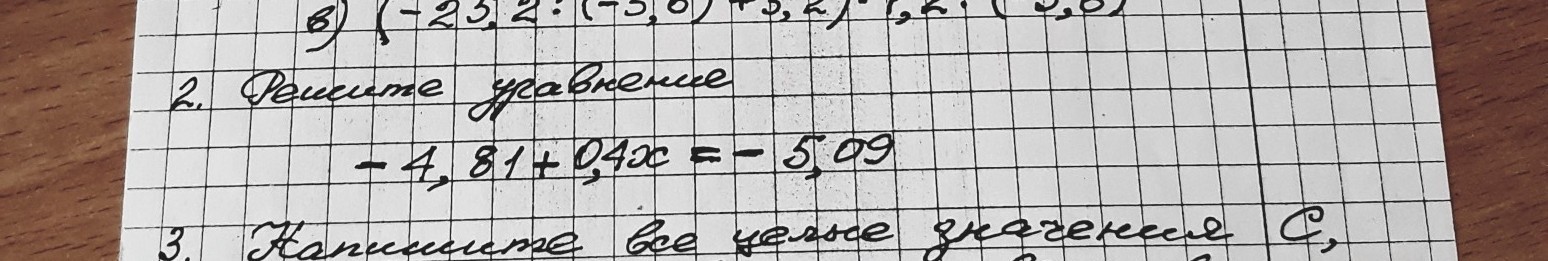 в) (-23,2:(-5,8)+3,2)·7,2:(-3,6)
2. Решите уравнение
-4,81+0,4x=-5,09
3. Напишите все целые значения С,